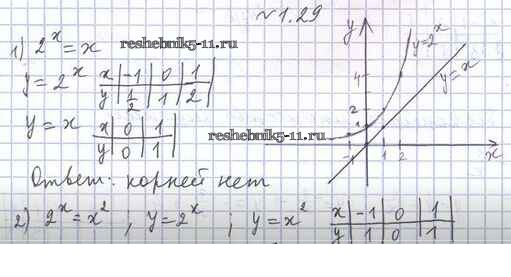 №1.29
1) 2^x = x
reshebnik5-11.ru
y = 2^x x | -1 | 0 | 1
y | 1/2 | 1 | 2
y = x x | 0 | 1
y | 0 | 1
reshebnik5-11.ru
y
y=2^x
y=x
4
2
1
-1 1 2 x
Ответ: корней нет
2) 2^x = x^2 , y = 2^x ; y = x^2 x | -1 | 0 | 1
y | 1 | 0 | 1